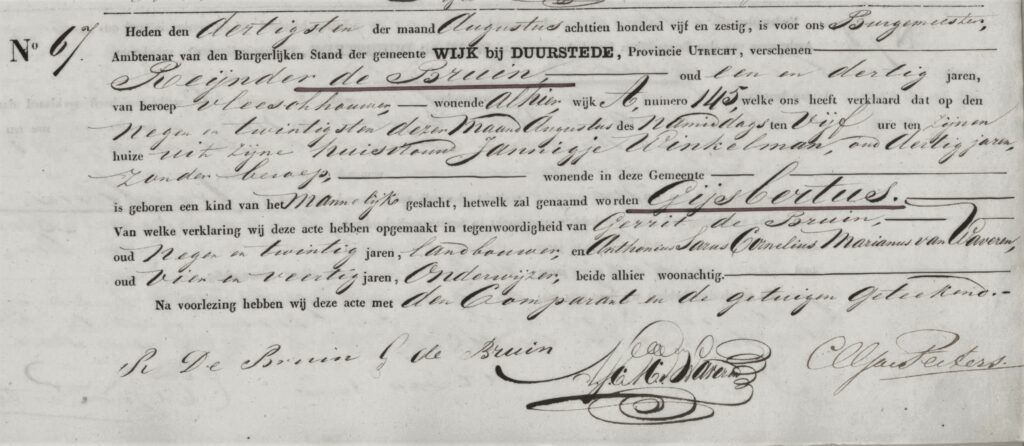 Nº 67.
Heden den dertigsten der maand Augustus achttien honderd vijf en zestig, is voor ons Burgemeester,
Ambtenaar van den Burgerlijken Stand der gemeente WIJK bij DUURSTEDE, Provincie UTRECHT, verschenen
Reijnder de Bruin, oud een en dertig jaren,
van beroep vleeschhouwer, wonende alhier, wijk A, numero 145, welke ons heeft verklaard dat op den
negen en twintigsten dezer maand Augustus des namiddags ten vijf ure ten zijnen
huize uit zijne huisvrouw Jannigje Winkelman, oud dertig jaren,
zonder beroep, wonende in deze Gemeente
is geboren een kind van het mannelijke geslacht, hetwelk zal genaamd worden Gijsbertus.
Van welke verklaring wij deze acte hebben opgemaakt in tegenwoordigheid van Gerrit de Bruin,
oud negen en twintig jaren, landbouwer, en Anthonius Cornelius Marianus van Waveren,
oud vier en veertig jaren, Onderwijzer, beide alhier woonachtig.
Na voorlezing hebben wij deze acte met den Comparant en de getuigen geteekend.
R De Bruin G de Bruin